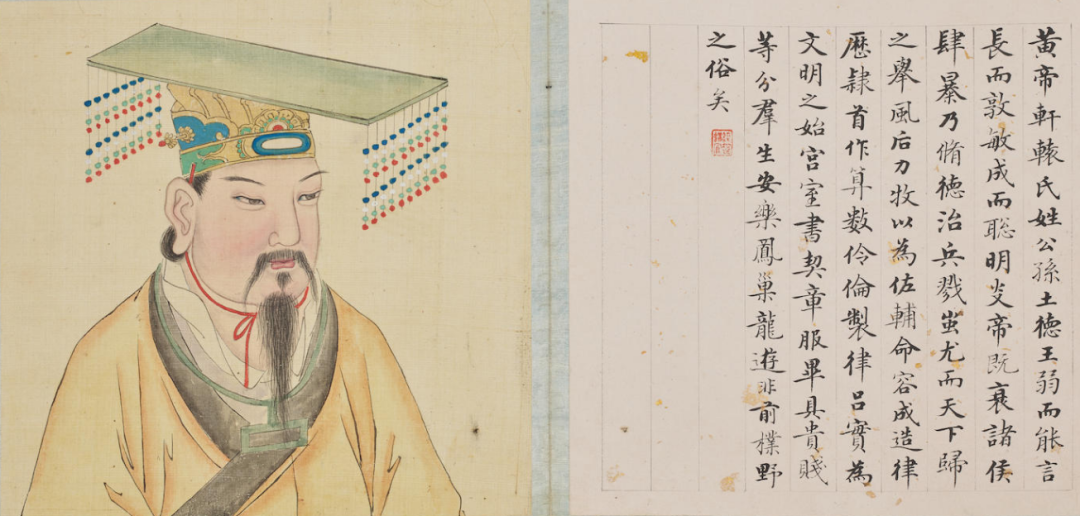 黃帝軒轅氏姓公孫土德王弱而能言
長而敦敏成而聰明炎帝既衰諸侯
肆暴乃脩德治兵戮蚩尤而天下歸
之舉風后力牧以為佐輔命容成造律
歷隸首作算數伶倫製律呂實為
文明之始宮室書契章服畢具貴賤
等分羣生安樂鳳巢龍遊非前樸野
之俗矣